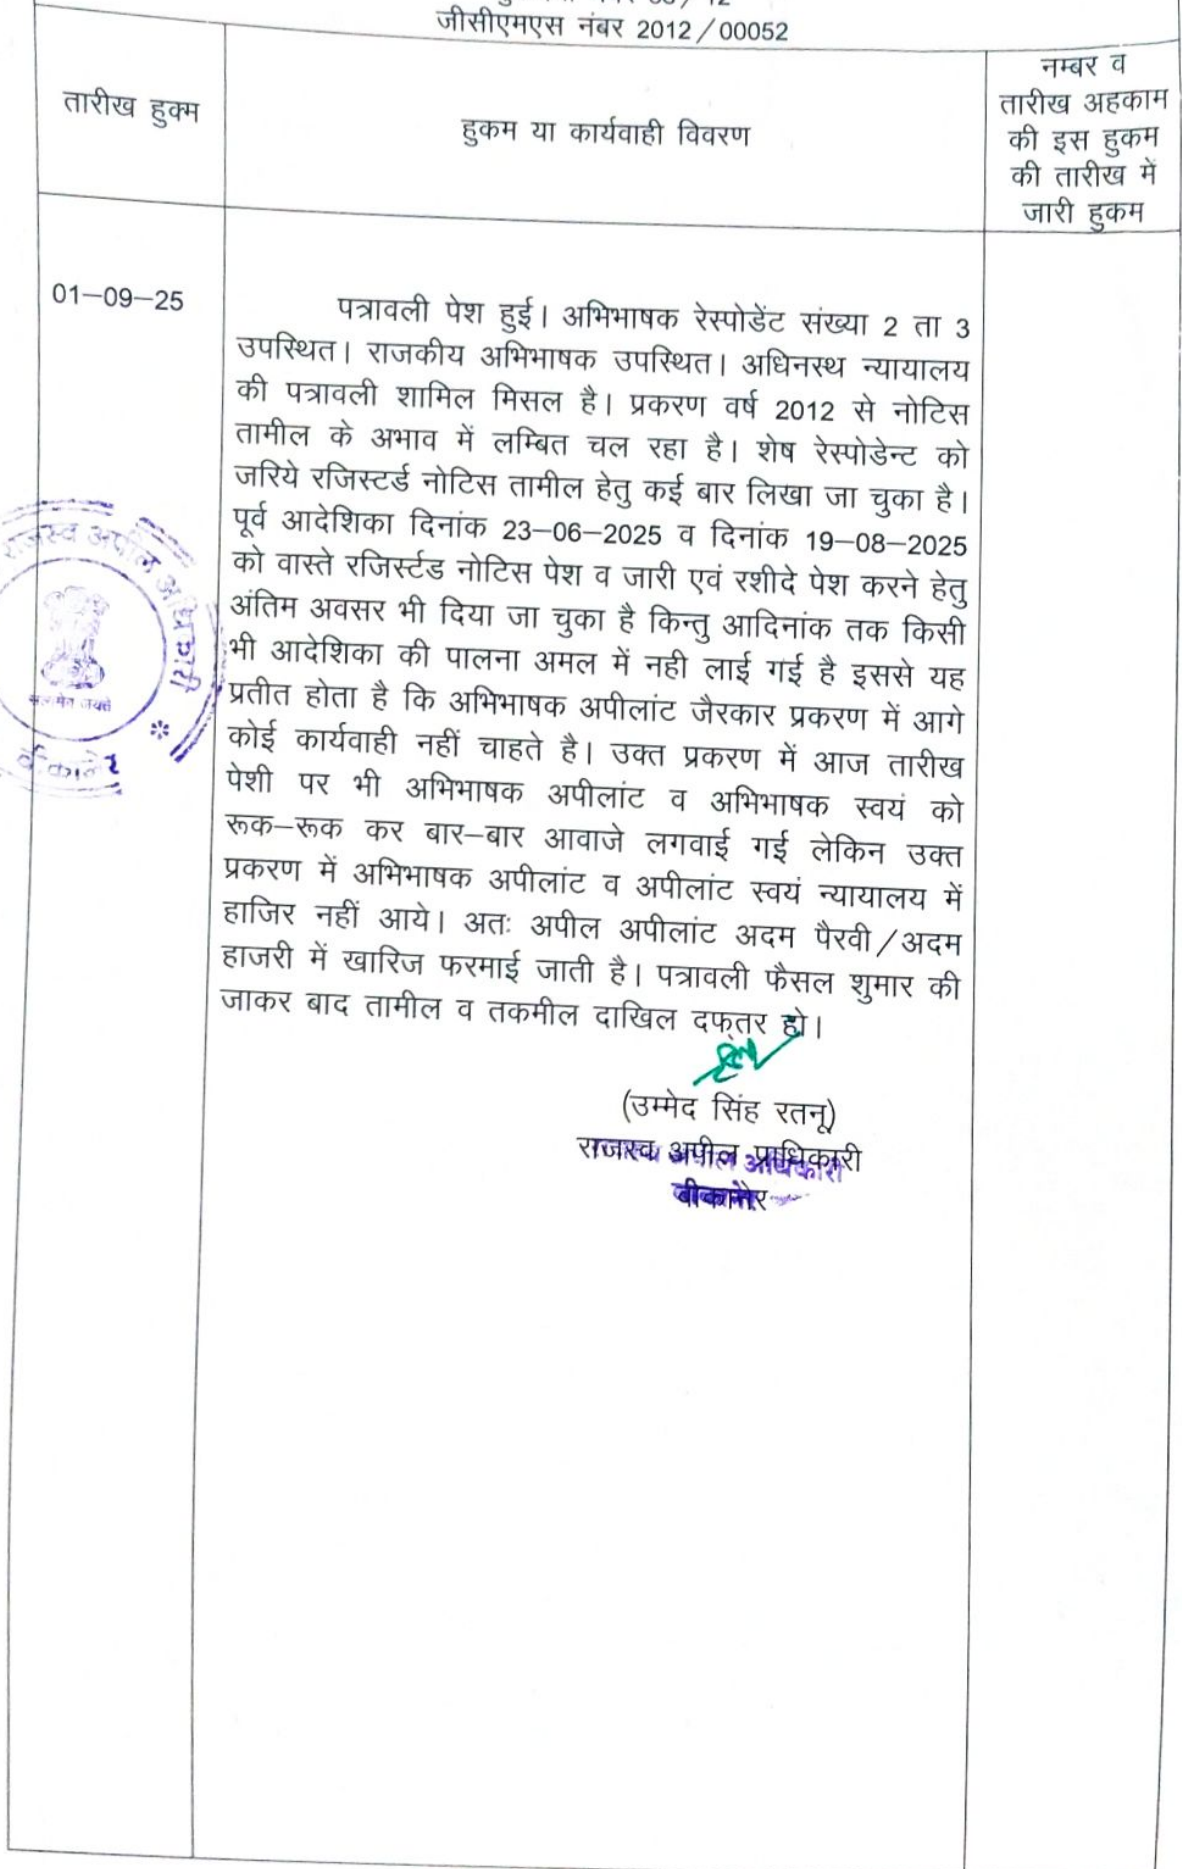 जीसीएमएस नंबर 2012/00052
तारीख हुक्म
हुकम या कार्यवाही विवरण
नम्बर व
तारीख अहकाम
की इस हुकम
की तारीख में
जारी हुकम
01–09–25
पत्रावली पेश हुई। अभिभाषक रेस्पोडेंट संख्या 2 ता 3
उपस्थित। राजकीय अभिभाषक उपस्थित। अधिनस्थ न्यायालय
की पत्रावली शामिल मिसल है। प्रकरण वर्ष 2012 से नोटिस
तामील के अभाव में लम्बित चल रहा है। शेष रेस्पोडेन्ट को
जरिये रजिस्टर्ड नोटिस तामील हेतु कई बार लिखा जा चुका है।
पूर्व आदेशिका दिनांक 23–06–2025 व दिनांक 19–08–2025
को वास्ते रजिर्स्टड नोटिस पेश व जारी एवं रशीदे पेश करने हेतु
अंतिम अवसर भी दिया जा चुका है किन्तु आदिनांक तक किसी
भी आदेशिका की पालना अमल में नही लाई गई है इससे यह
प्रतीत होता है कि अभिभाषक अपीलांट जैरकार प्रकरण में आगे
कोई कार्यवाही नहीं चाहते है। उक्त प्रकरण में आज तारीख
पेशी पर भी अभिभाषक अपीलांट व अभिभाषक स्वयं को
रूक–रूक कर बार–बार आवाजे लगवाई गई लेकिन उक्त
प्रकरण में अभिभाषक अपीलांट व अपीलांट स्वयं न्यायालय में
हाजिर नहीं आये। अतः अपील अपीलांट अदम पैरवी/अदम
हाजरी में खारिज फरमाई जाती है। पत्रावली फैसल शुमार की
जाकर बाद तामील व तकमील दाखिल दफ्तर हो।
राजस्व अपील अधिकारी
सत्यमेव जयते
बीकानेर
(उम्मेद सिंह रतनू)
राजस्व अपील प्राधिकारी
राजस्व अपील अधिकारी
बीकानेर